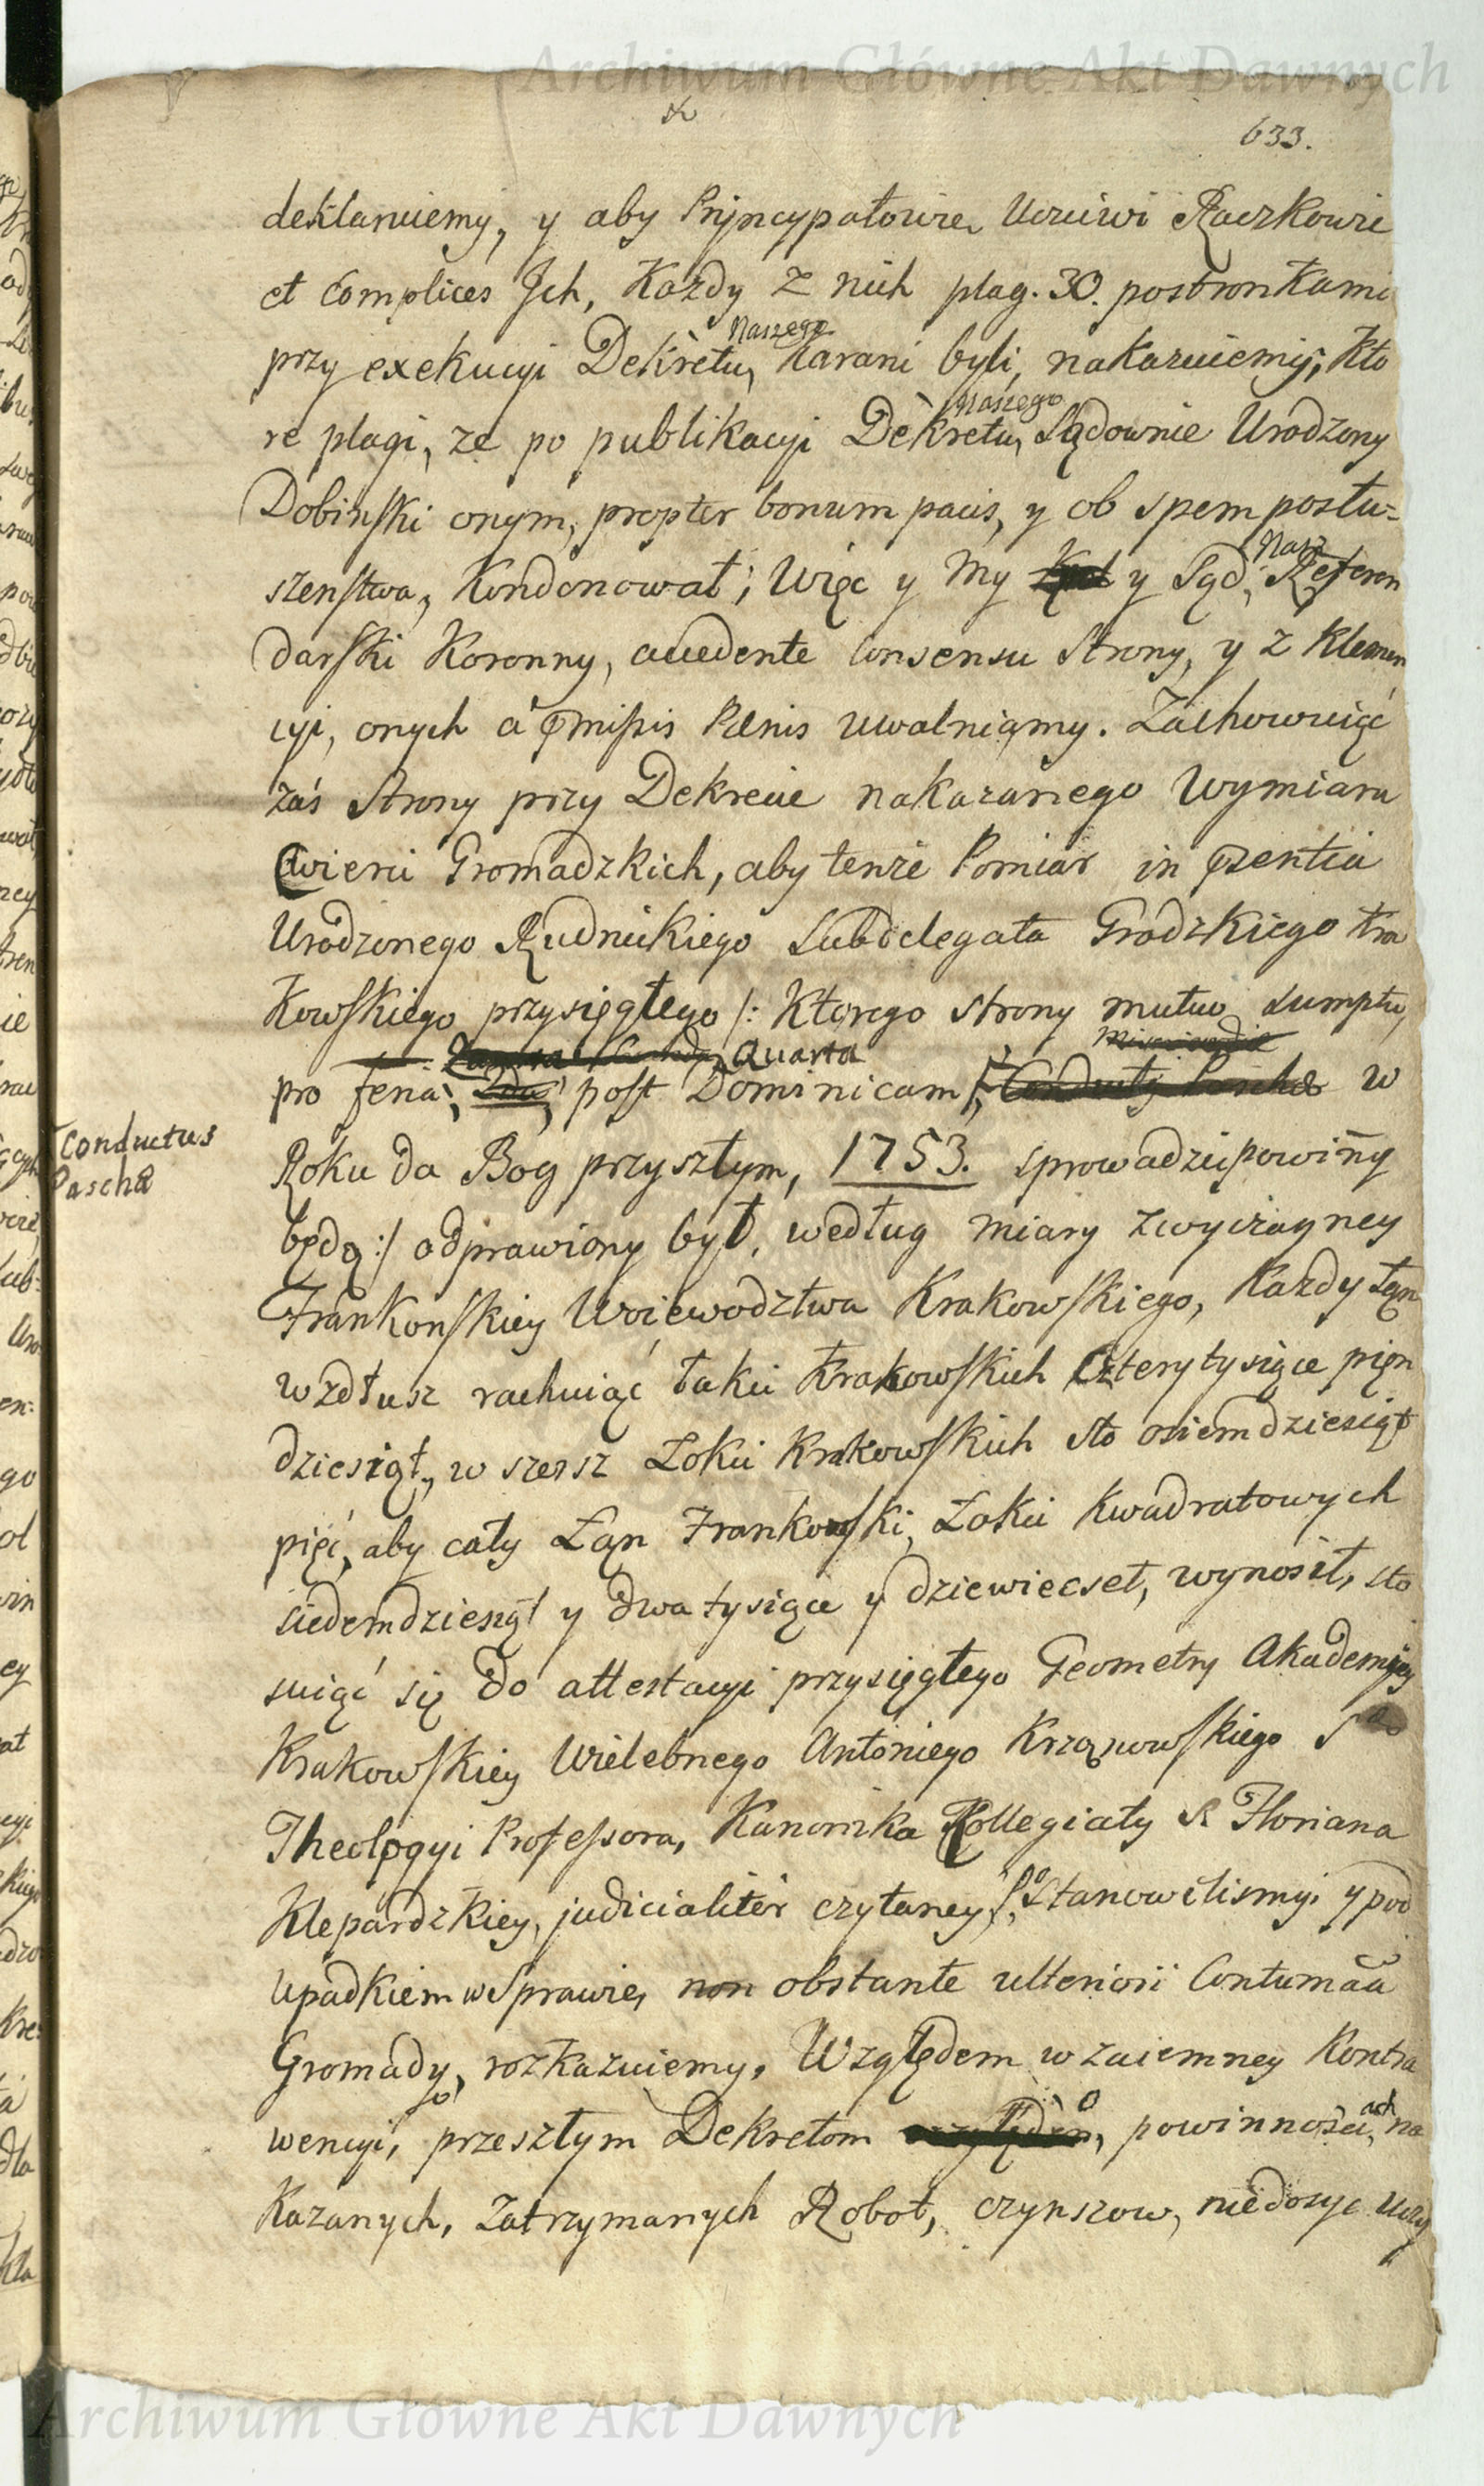 Archiwum Główne Akt Dawnych
633.
deklaruiemy, y aby Prÿncypałowie, Uczciwi Raczkowie
et Complices Jch, Kazdy z nich plag. 30. postronkami
Naszego
przy exekucyi Dekretu, karani byli, nakazuiemy; kto
Naszego
re plagi, ze po publikacyi Dekretu, Sądownie Urodzony
Dobinski onym, propter bonum pacis, y ob spem posłu-
Nasz
szenstwa, Kondonował; Więc y My y Sąd, Referen
darski Koronny, accedente Consensu Strony, y z Klemen
cyi, onych á pmissis Pænis uwalniąmy. Zachowuiąć
zaś Strony przy Dekrecie nakazanego Wymiaru
Cwierci Gromadzkich, aby tenże Pomiar in pzentia
Urodzonego Rudnickiego Subdelegata Grodzkiego kra
kowskiego przysięgłego /: Ktorego strony mutuo sumptu,
Quarta
pro fena, post Dominicam w
Conductus
Paschæ
Roku da Bog przyszłym, 1753. sprowadzić powiñy
będą :/ odprawiony był, według miary zwyczayney
Frankonskiey Woiewodztwa Krakowskiego, Kazdy Łąn
wzdłusz rachuiąć łokci Krakowskich Czterytysiące pięn
dziesiąt, w szersz Łokci Krakowskich sto osiemdziesiąt
pięć, aby cały Łąn Frankowski, Łokci kwadratowych
siedemdziesiąt y dwa tysiące y dziewiecset, wynosił, sto
suiąć się do attestacyi przysięgłego Geometry Akademÿey
Krakowskiey Wielebnego Antoniego Krząnowskiego S
Theologyi Professora, Kanonika Kollegiaty S. Floriana
Klepardzkiey, judicialiter czytaney, Stanowilismy, y pod
Upadkiem w Sprawie, non obstante ulteriori Contumacia
Gromady, rozkazuiemy. Względem wzaiemney Kontra
wencyi, przeszłym Dekretom powinnościach, na
Kazanych, Zatrzymanych Robot, czynszow, niedosyc uczy
Archiwum Główne Akt Dawnych